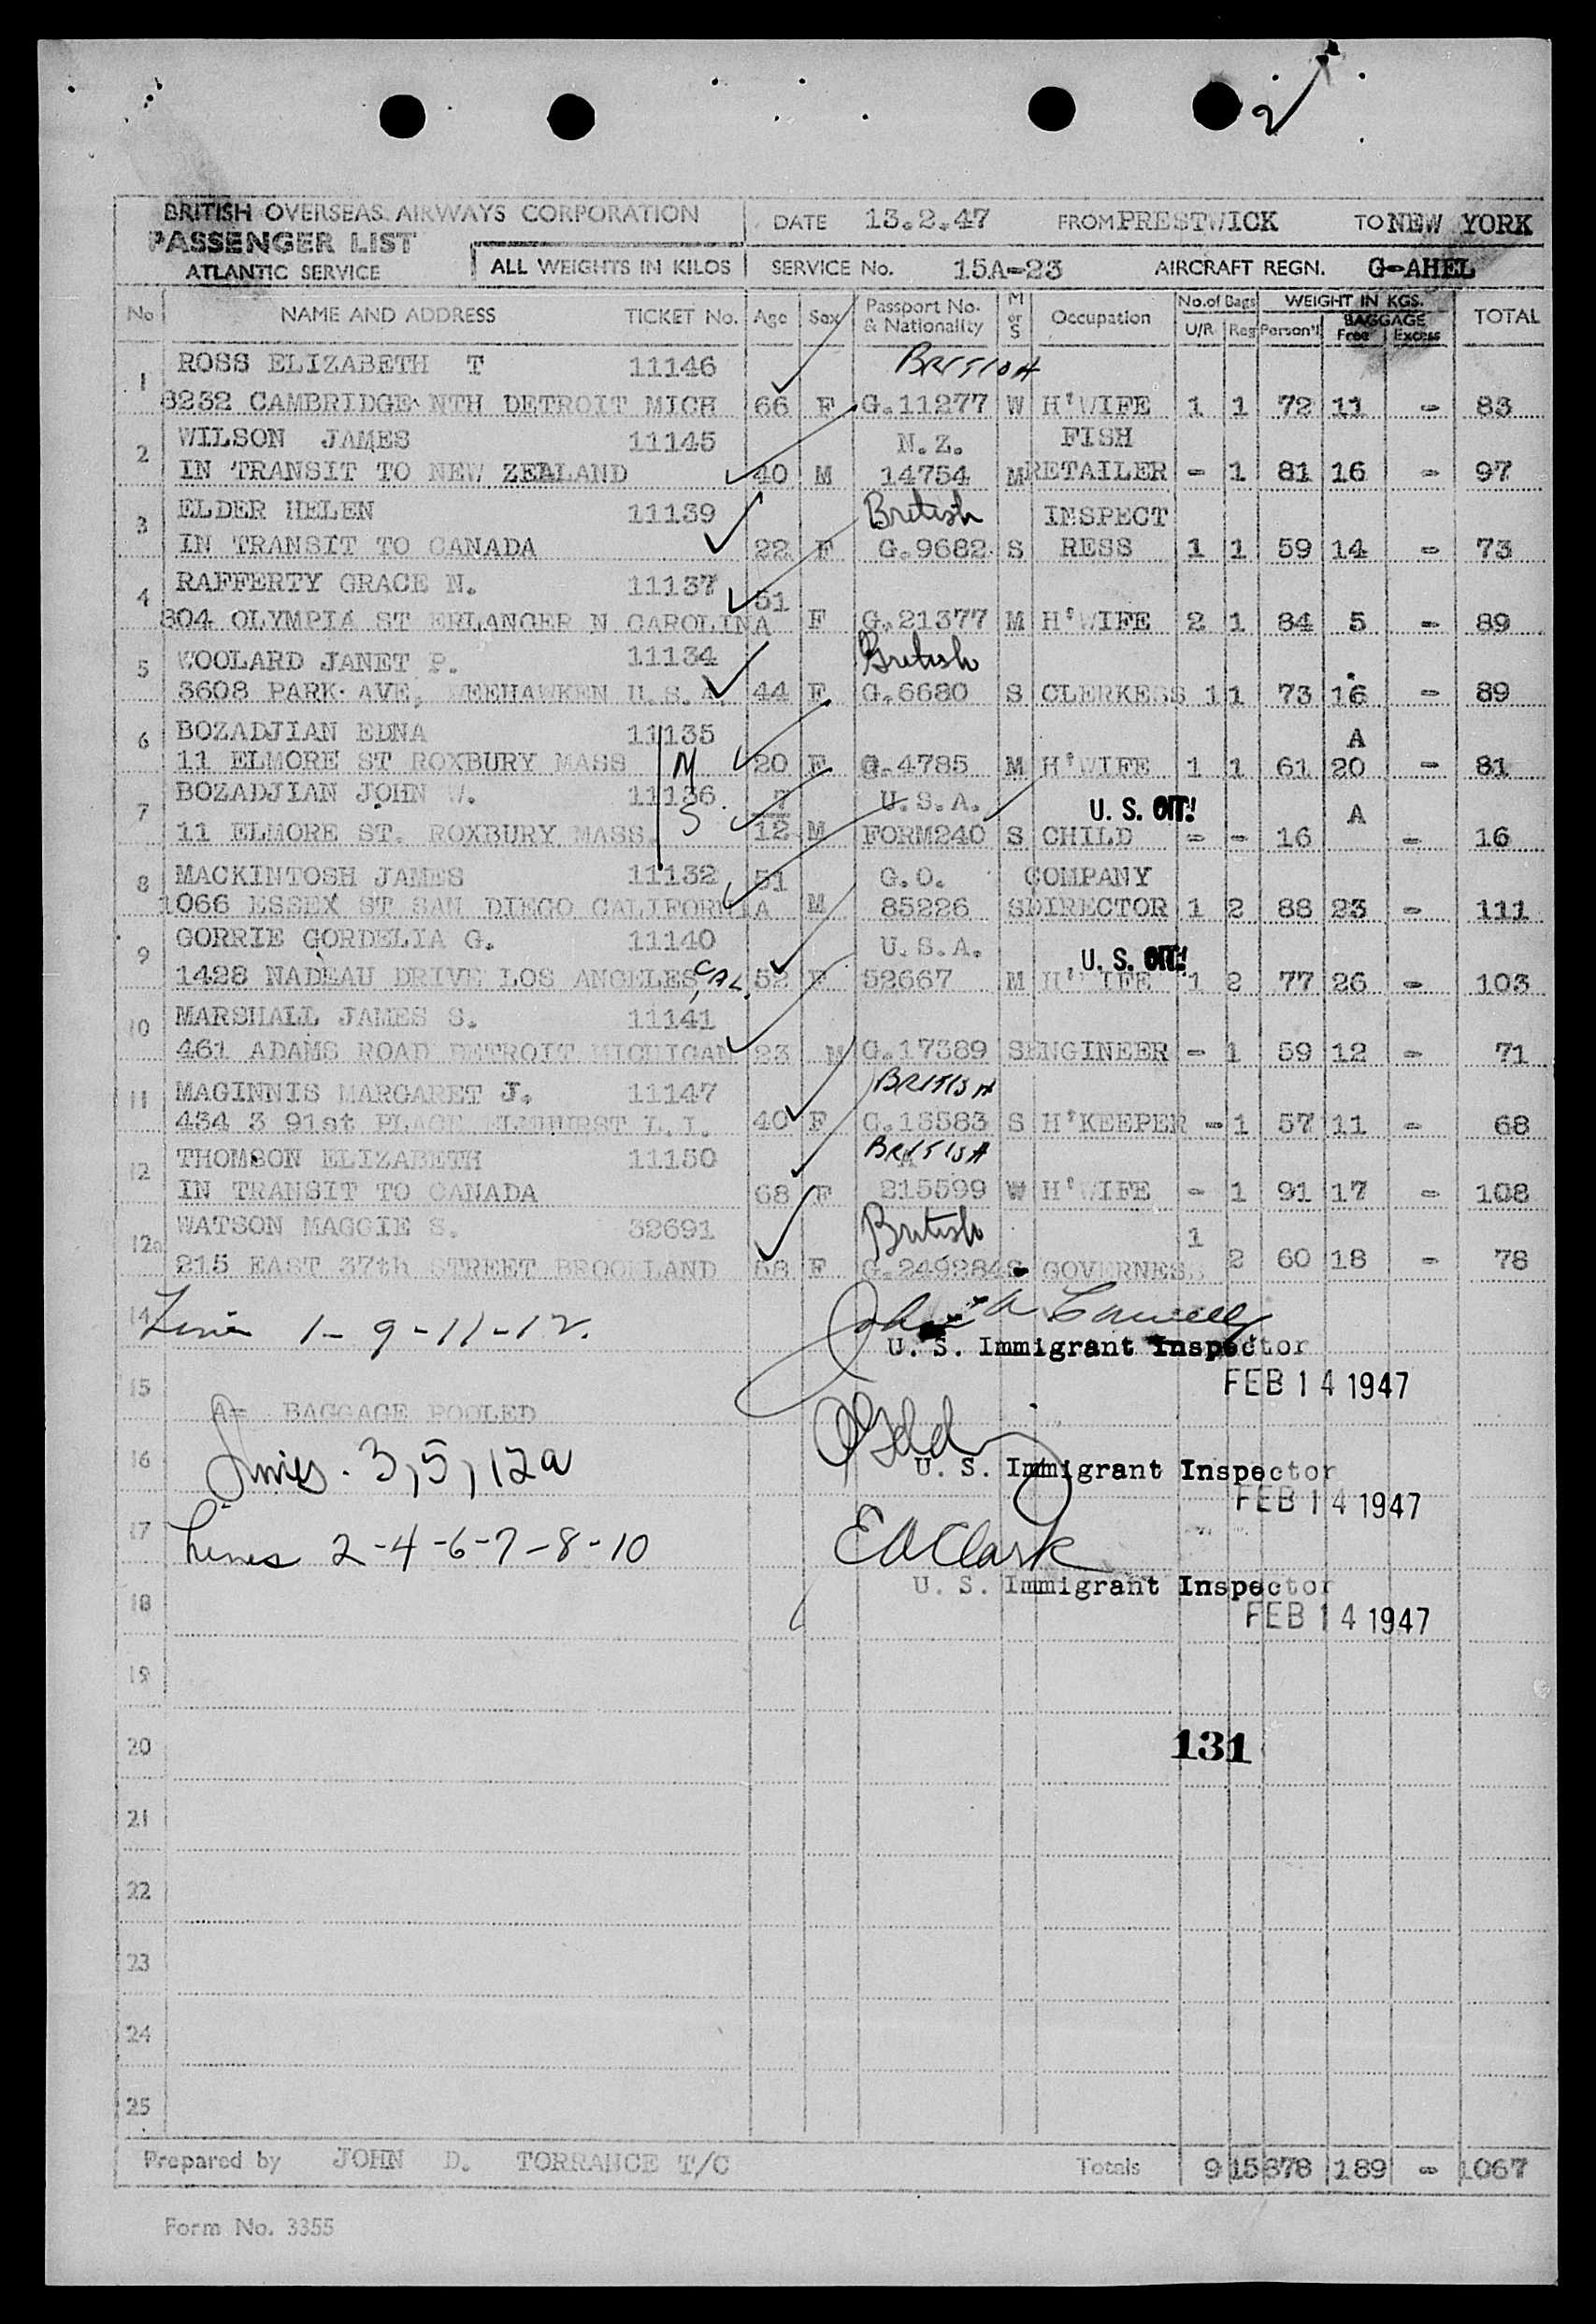 2
BRITISH OVERSEAS AIRWAYS CORPORATION
PASSENGER LIST
ATLANTIC SERVICE
ALL WEIGHTS IN KILOS
DATE 13.2.47 FROM PRESTWICK TO NEW YORK
SERVICE No. 15A-23 AIRCRAFT REGN. G-AHEL
No NAME AND ADDRESS TICKET No. Age Sex Passport No. & Nationality M or S Occupation No. of Bags U/R Reg WEIGHT IN KGS. Person'l BAGGAGE Free Excess TOTAL
1 ROSS ELIZABETH T 11146 BRITISH
8232 CAMBRIDGE NTH DETROIT MICH 66 F G.11277 W H'WIFE 1 1 72 11 - 83
2 WILSON JAMES 11145 N.Z. FISH
IN TRANSIT TO NEW ZEALAND 40 M 14754 M RETAILER - 1 81 16 - 97
3 ELDER HELEN 11139 British INSPECT
IN TRANSIT TO CANADA 22 F G.9682 S RESS 1 1 59 14 - 73
4 RAFFERTY GRACE N. 11137 51
804 OLYMPIA ST ERLANGER N CAROLINA F G.21377 M H'WIFE 2 1 84 5 - 89
5 WOOLARD JANET P. 11134 British
3608 PARK AVE, WEEHAWKEN U.S.A. 44 F G.6680 S CLERKESS 1 1 73 16 - 89
6 BOZADJIAN EDNA 11135 A
11 ELMORE ST ROXBURY MASS M 20 F G.4785 M H'WIFE 1 1 61 20 - 81
7 BOZADJIAN JOHN W. 11136 7 U.S.A. U.S. CIT! A
11 ELMORE ST. ROXBURY MASS. S 12 M FORM240 S CHILD - - 16 - 16
8 MACKINTOSH JAMES 11132 51 G.O. COMPANY
1066 ESSEX ST SAN DIEGO CALIFORNIA M 85226 S DIRECTOR 1 2 88 23 - 111
9 GORRIE GORDELIA G. 11140 U.S.A. U.S. CIT!
1428 NADEAU DRIVE LOS ANGELES, CAL. 52 F 52667 M H'WIFE 1 2 77 26 - 103
10 MARSHALL JAMES S. 11141
461 ADAMS ROAD DETROIT MICHIGAN 23 M G.17389 S ENGINEER - 1 59 12 - 71
11 MAGINNIS MARGARET J. 11147 BRITISH
434 3 91st PLACE ELMHURST L.I. 40 F G.15583 S H'KEEPER - 1 57 11 - 68
12 THOMSON ELIZABETH 11150 BRITISH
IN TRANSIT TO CANADA 68 F 215599 W H'WIFE - 1 91 17 - 108
12a WATSON MAGGIE S. 32691 British 1
215 EAST 37th STREET BROOKLAND 58 F G.249284 S GOVERNESS 2 60 18 - 78
14 1-9-11-12.
U. S. Immigrant Inspector
FEB 14 1947
15
A= BAGGAGE POOLED
16 Lines. 3, 5, 12a
U. S. Immigrant Inspector
FEB 14 1947
17 Lines 2-4-6-7-8-10 E A Clark
U. S. Immigrant Inspector
18 FEB 14 1947
19
20 131
21
22
23
24
25
Prepared by JOHN D. TORRANCE T/C Totals 9 15 878 189 - 1067
Form No. 3355